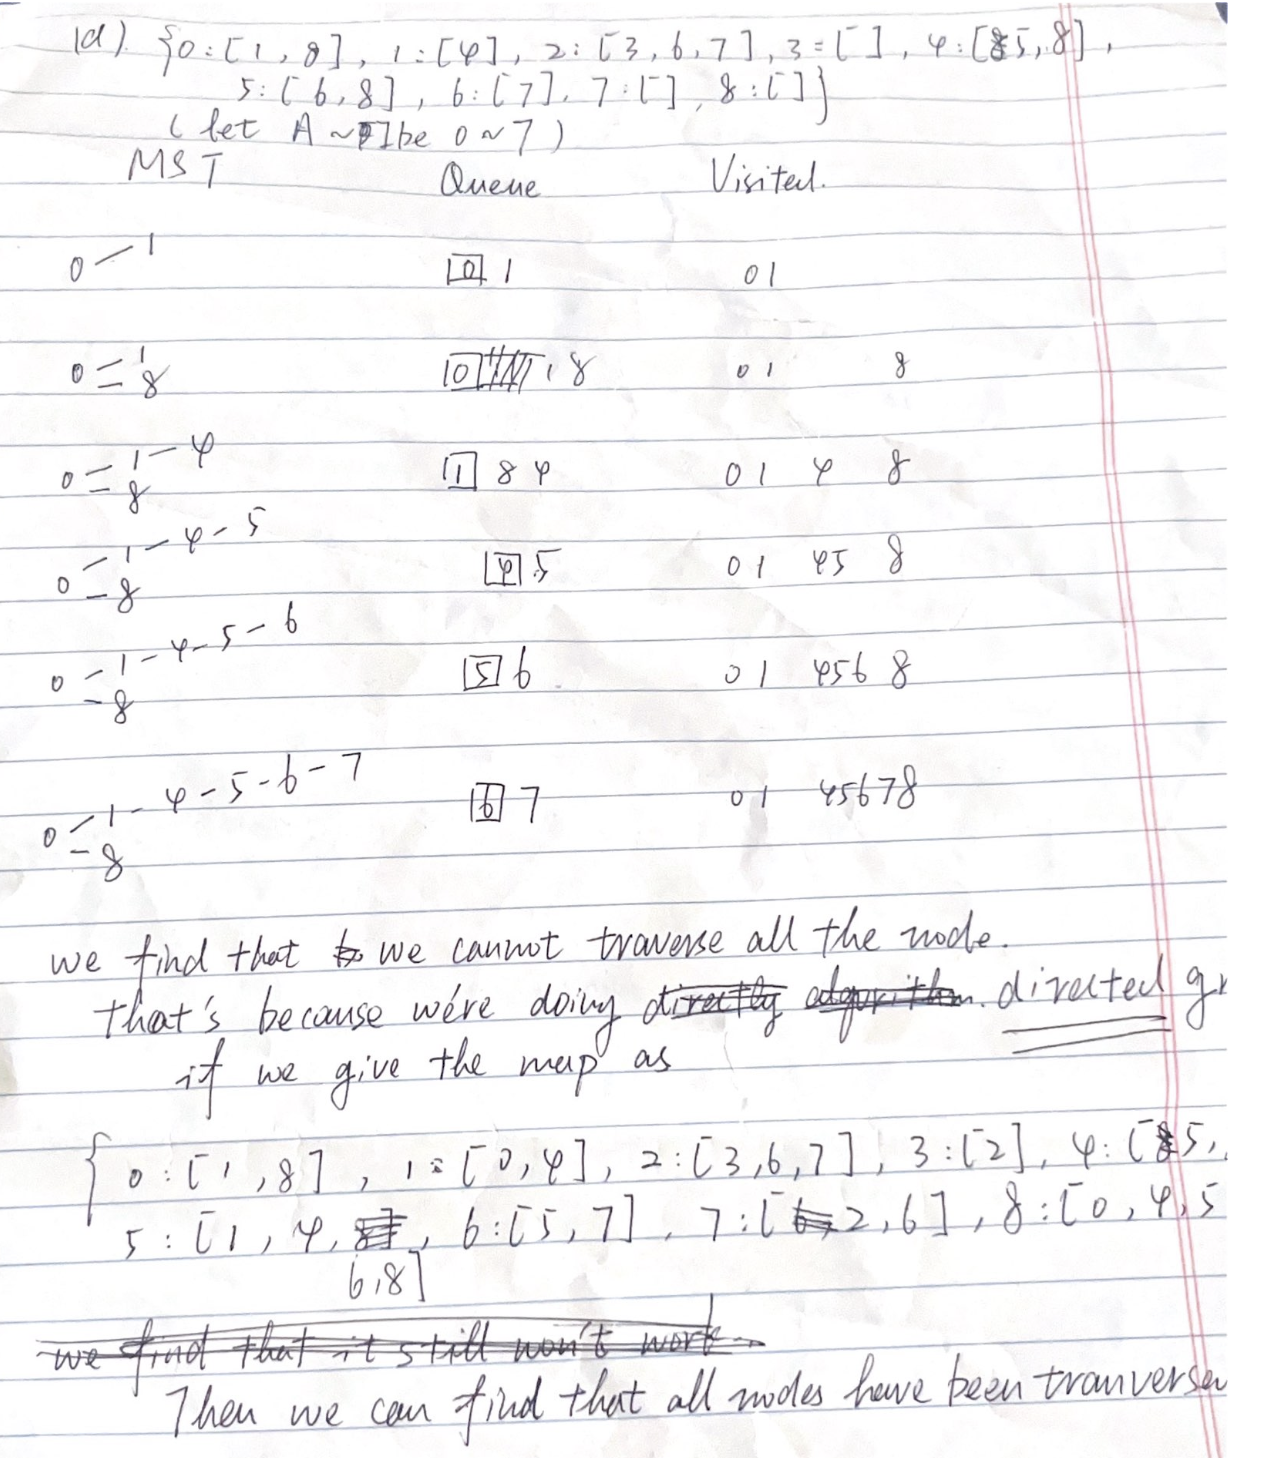 1d). {0:[1,8], 1:[4], 2:[3,6,7], 3=[], 4:[5,8],
5:[6,8], 6:[7], 7:[], 8:[]}
(let A ~ I be 0 ~ 7)
MST Queue Visited.
0 1 0 1 0 1
0 1 8 0 1 8 0 1 8
0 1 4 8 1 8 4 0 1 4 8
0 1 4 5 8 4 5 0 1 4 5 8
0 1 4 5 6 8 5 6 0 1 4 5 6 8
0 1 4 5 6 7 8 6 7 0 1 4 5 6 7 8
we find that we cannot traverse all the node.
that's because we're doing directly algorithm. directed gr
if we give the map as
{0:[1,8], 1:[0,4], 2:[3,6,7], 3:[2], 4:[5,
5:[1,4, 6:[5,7], 7:[2,6], 8:[0,4,5
6,8]
we find that it still won't work
Then we can find that all nodes have been tranverse